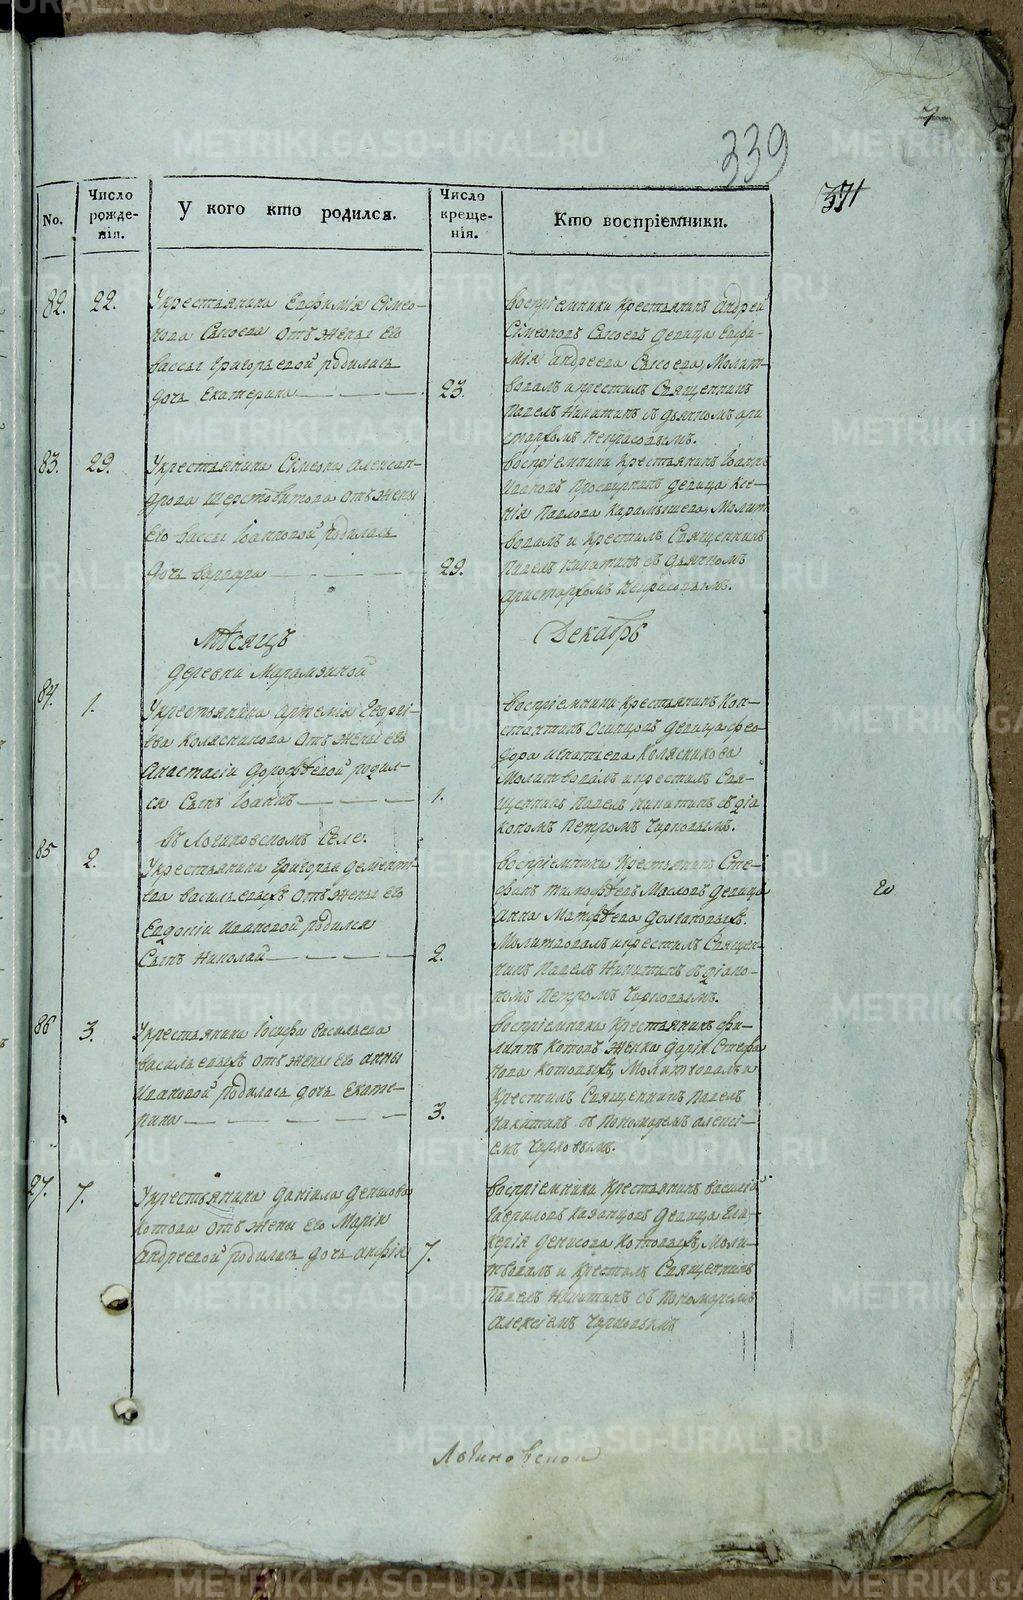 7
339
371
No.
Число рожде-нія.
У кого кто родился.
Число креще-нія.
Кто воспріемники.
82. 22.
Укрестьянина Евфимія Сімео-
нова Сысоева отъ жены его
вассы Григорьевой родилась
дочь Екатерина 23.
воспріемники крестьянинъ андрей
Сімеоновъ Сысоевъ девица Евфи-
мія андреева Сысоева, Молит-
вовалъ и крестилъ Священникъ
Павелъ Никитинъ съ дьячкомъ ари
стархомъ Некрасовымъ.
83. 29.
Укрестьянина Сімеона алексан-
дрова шерстобитова отъ жены
Его вассы Іоанновой родилась
дочь варвара 29.
воспріемники крестьянинъ Іоаннъ
Ивановъ девица Ксе-
нія Павлова Карамышева, Молит
вовалъ и крестилъ Священникъ
Павелъ Никитинъ съ дьячкомъ
аристархомъ Некрасовымъ.
Мѣсяцъ Декабрь
деревни Марамзиной
84. 1.
Укрестьянина артемія Георгі-
ева Колясникова отъ жены его
анастасіи дорофѣевой родил-
ся Сынъ Іоаннъ 1.
воспріемники крестьянинъ Кон-
стантинъ Осиповъ девица фео-
дора игнатьева Колясникова
Молитвовалъ и крестилъ Свя-
щенникъ Павелъ никитинъ съ діа
кономъ Петромъ Чирковымъ.
въ Логиновскомъ Селе.
85 2.
Укрестьянина Григорья демент-
ева васильевыхъ отъ жены его
Евдокіи Ивановой родился
Сынъ Николай 2.
воспріемники крестьянинъ Сте-
фанъ тимофѣевъ Масловъ девица
анна Матвѣева долгановыхъ.
Молитвовалъ и крестилъ Священ-
никъ Павелъ Никитинъ съ діако-
номъ Петромъ Чирковымъ.
20
86 3.
Укрестьянина Іосифа васильева
васильевыхъ отъ жены его анны
Ивановой родилась дочь Екате-
рина 3.
воспріемники крестьянинъ фи-
липпъ Котовъ женка дарія Стефа
нова Котовыхъ, Молитвовалъ и
крестилъ Священникъ Павелъ
Никитинъ съ Пономаремъ алексі-
емъ Чирковымъ.
27. 7.
Укрестьянина даніила денисова
Котова отъ жены его Маріи
андреевой родилась дочь анфія 7.
воспріемники крестьянинъ василій
Гавриловъ Казанцовъ девица Гли-
керія денисова Котовыхъ, Моли-
твовалъ и крестилъ Священникъ
Павелъ Никитинъ съ Пономаремъ
алексіемъ Чирковымъ
Логиновской